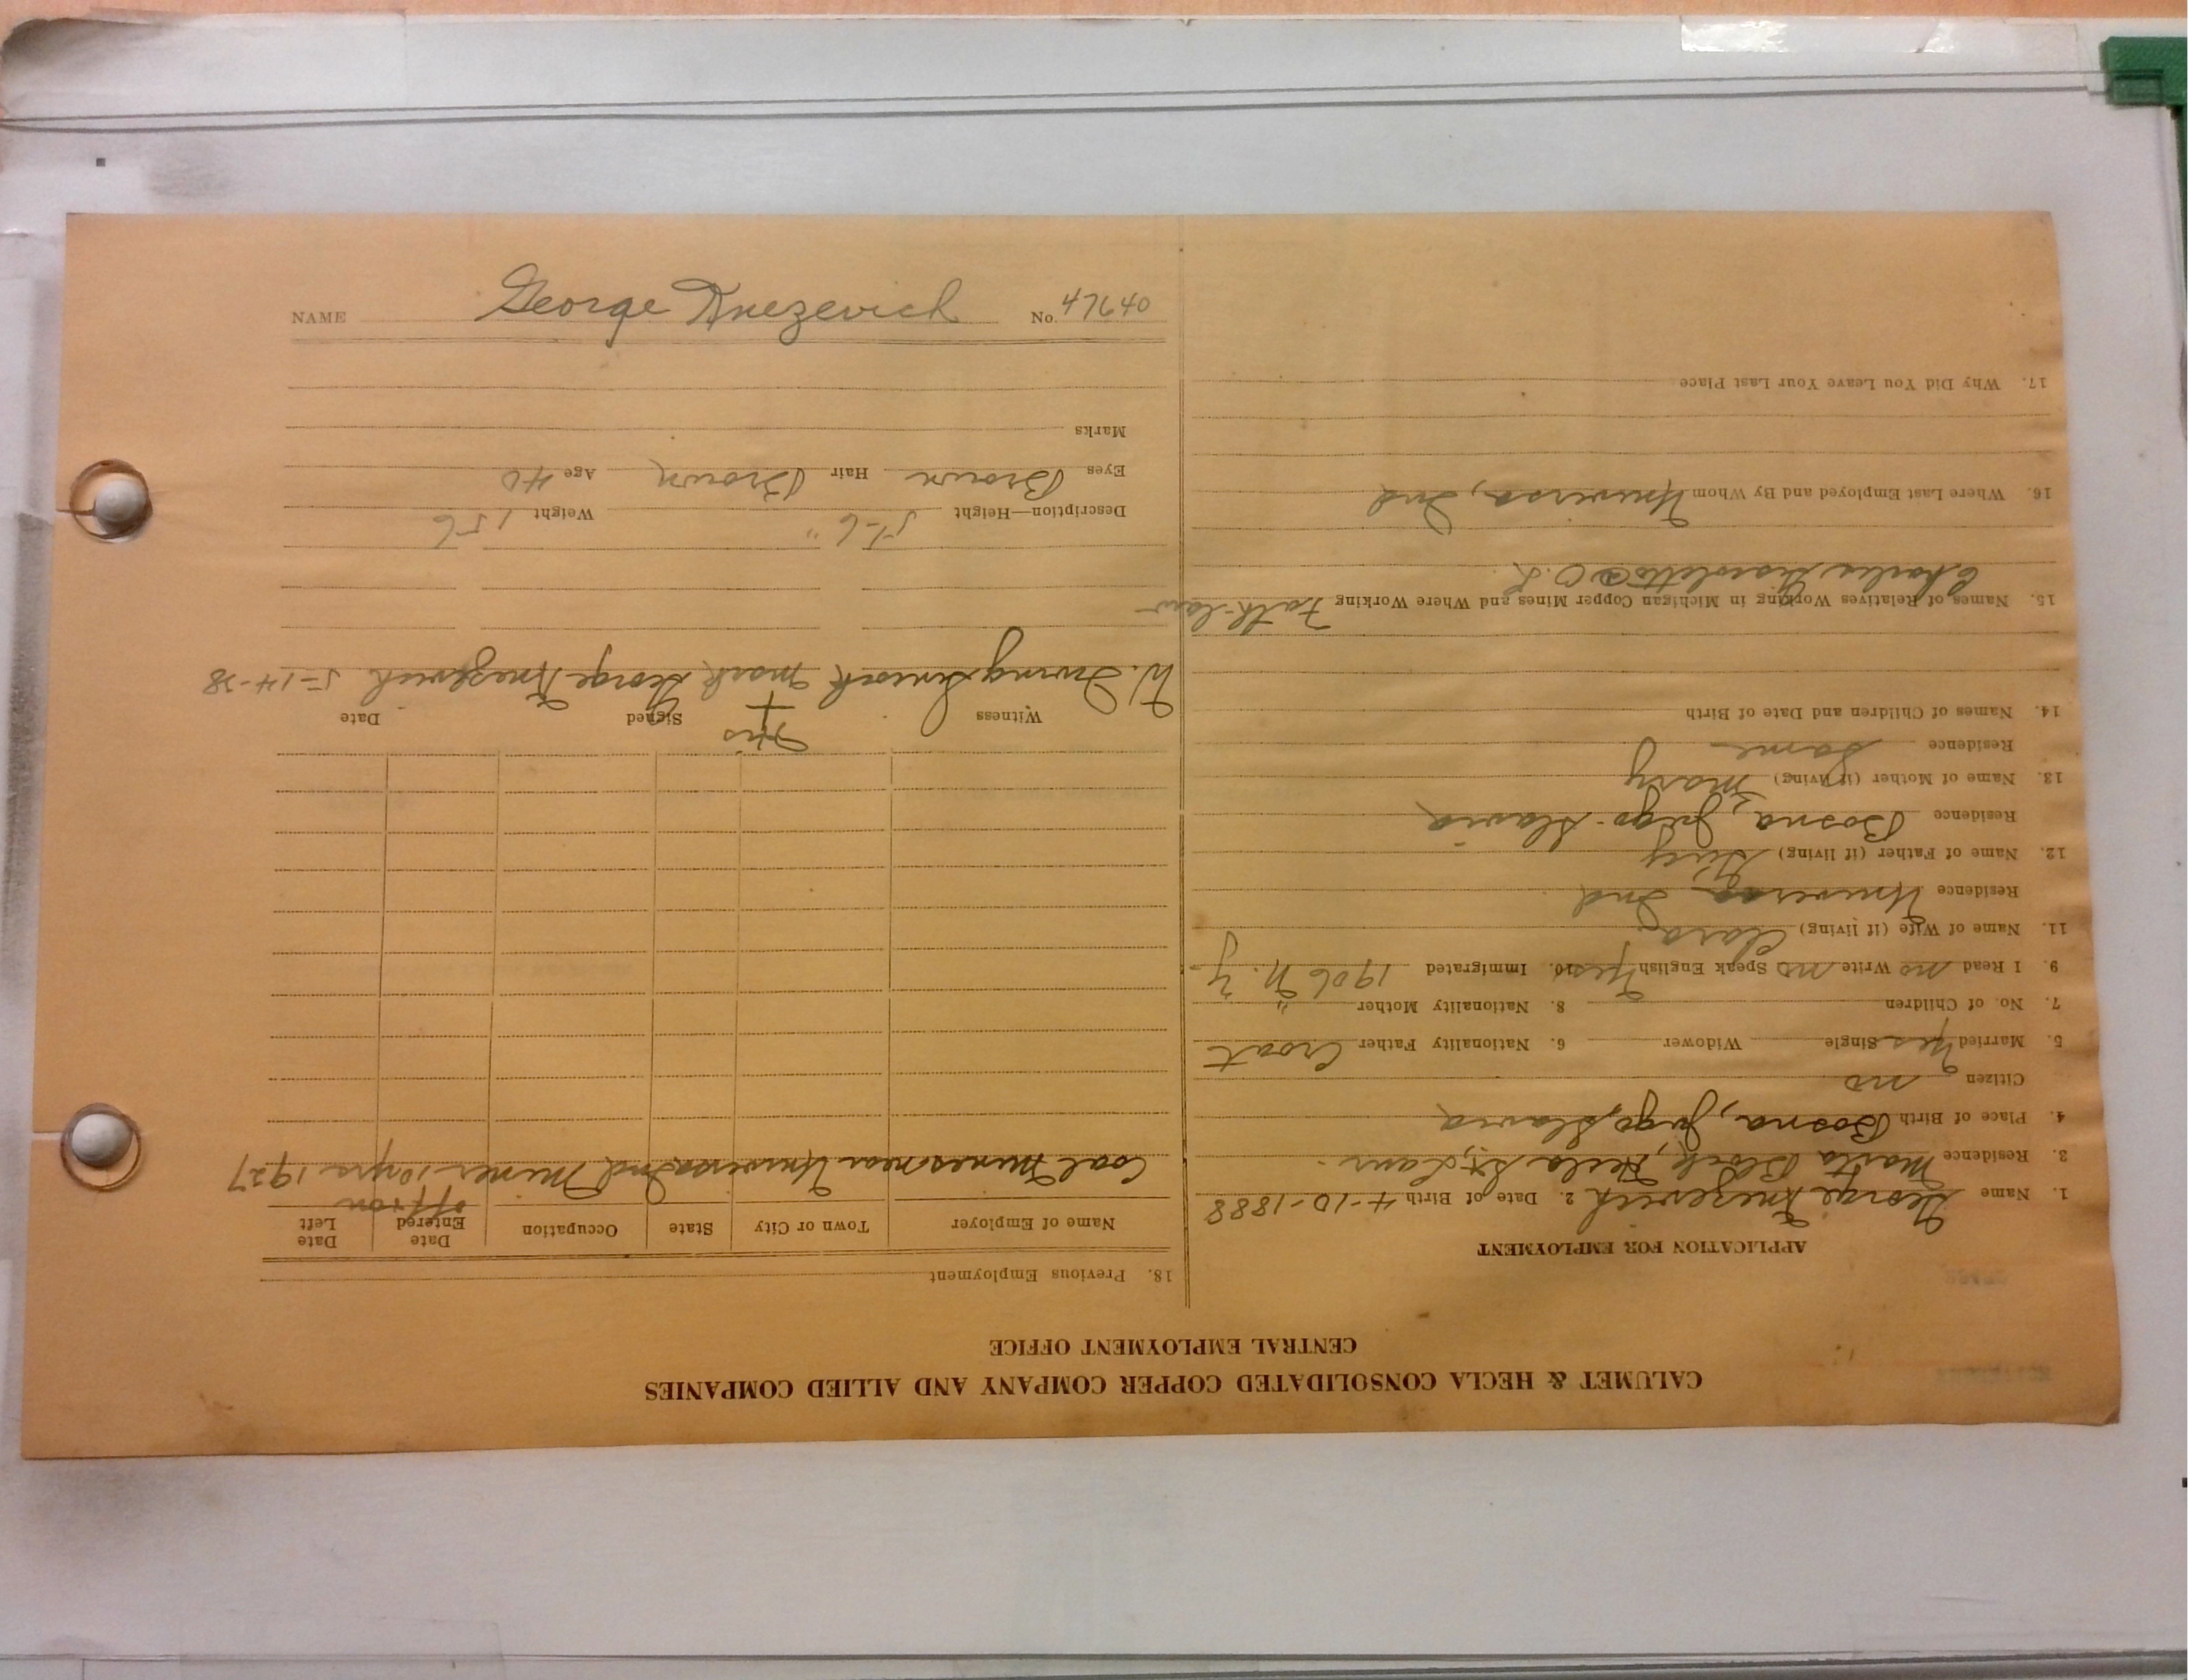 NAME George Knezevich No. 47640
CALUMET & HECLA CONSOLIDATED COPPER COMPANY AND ALLIED COMPANIES
CENTRAL EMPLOYMENT OFFICE
APPLICATION FOR EMPLOYMENT
1. Name George Knezevich 2. Date of Birth 4-10-1888
3. Residence Block, Hecla St, Laur
4. Place of Birth Bosna, Jugo Slavia
Citizen no
5. Married Yes Single Widower 6. Nationality Father Croat
7. No. of Children 8. Nationality Mother "
9. I Read no Write no Speak English Yes 10. Immigrated 1906 N.Y
11. Name of Wife (if living) Clara
Residence Universa Ind
12. Name of Father (if living)
Residence Bosna, Jugo-Slavia
13. Name of Mother (if living) Mary
Residence Same
14. Names of Children and Date of Birth
15. Names of Relatives Working in Michigan Copper Mines and Where Working Fath-law
Charles @ O.K.
16. Where Last Employed and By Whom Universa, Ind
17. Why Did You Leave Your Last Place
18. Previous Employment
Name of Employer Town or City State Occupation Date Entered Date Left
off + on
Coal Mines near Universa Ind Miner 10 yrs. 1927
Witness Signed Date
His
+
W. Irving mark George Knezevich 5-14-28
Description—Height 5'-6" Weight 156
Eyes Brown Hair Brown Age 40
Marks